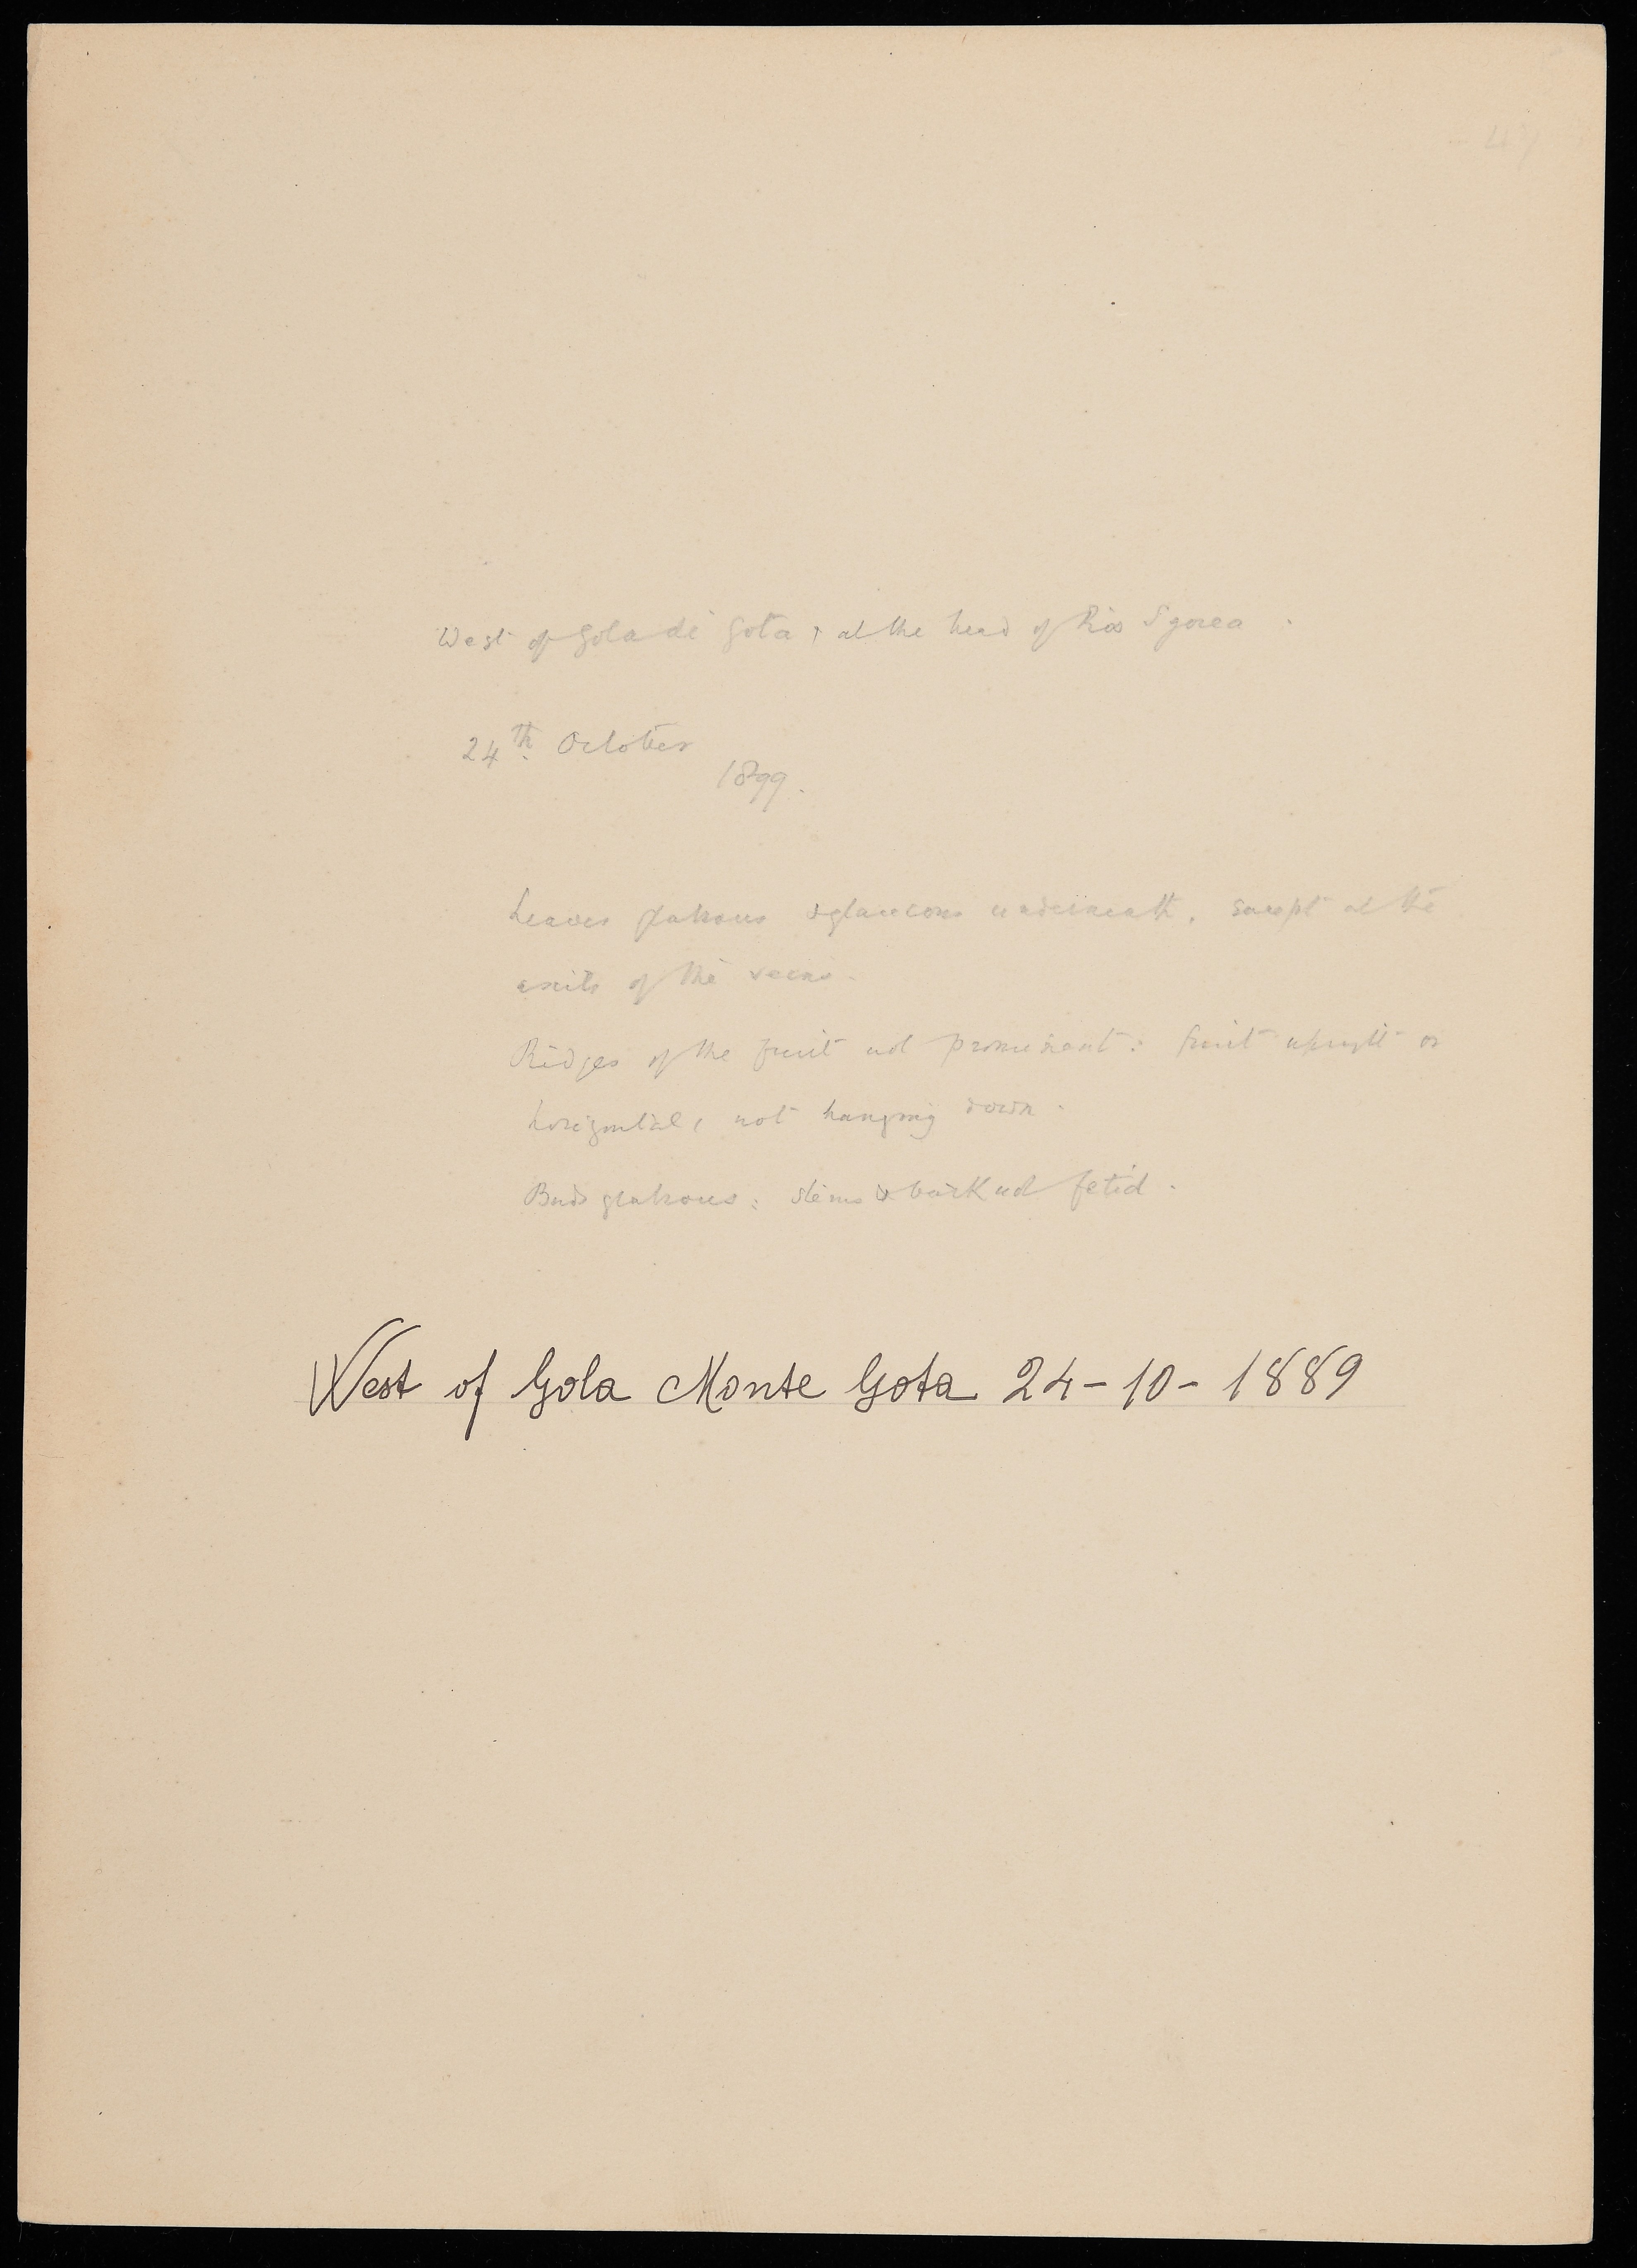 West of Gola di Gota, at the head of Rios
24th October
1899.
Leaves glabrous & glaucous underneath, except at the
axils of the veins.
Ridges of the fruit not prominent: fruit upright or
horizontal, not hanging down.
Buds glabrous: stems & bark not fetid.
West of Gola Monte Gota 24-10-1889